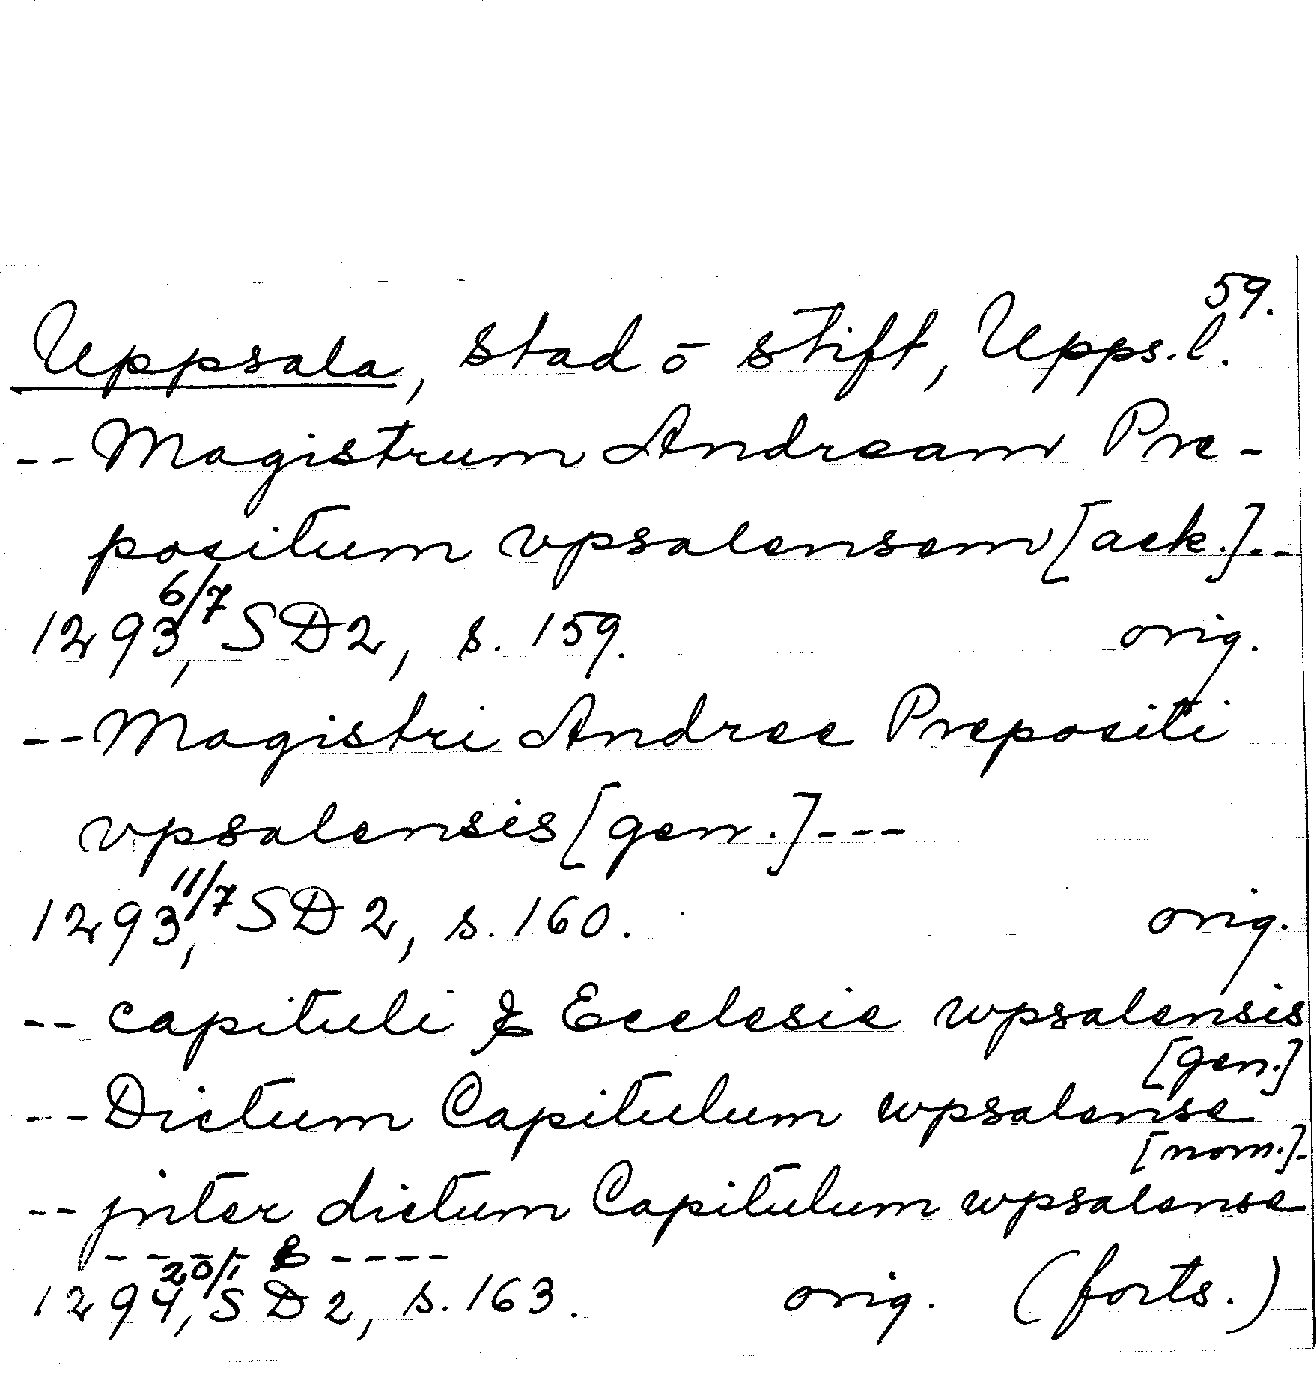 59.
Uppsala, stad ō stift, Upps.l.
-- Magistrum Andream Pre-
positum vpsalensem [ack.]--
1293, 6/7 SD2, s. 159. orig.
-- Magistri Andree Prepositi
vpsalensis [gen.]---
1293, 11/7 SD 2, s. 160. orig.
-- capituli & Ecclesie wpsalensis
[gen.]
-- Dictum Capitulum wpsalense
[nom.]-
-- jnter dictum Capitulum wpsalense
- - - - - & - - - -
1294, 20/1 SD 2, s. 163. orig. (forts.)